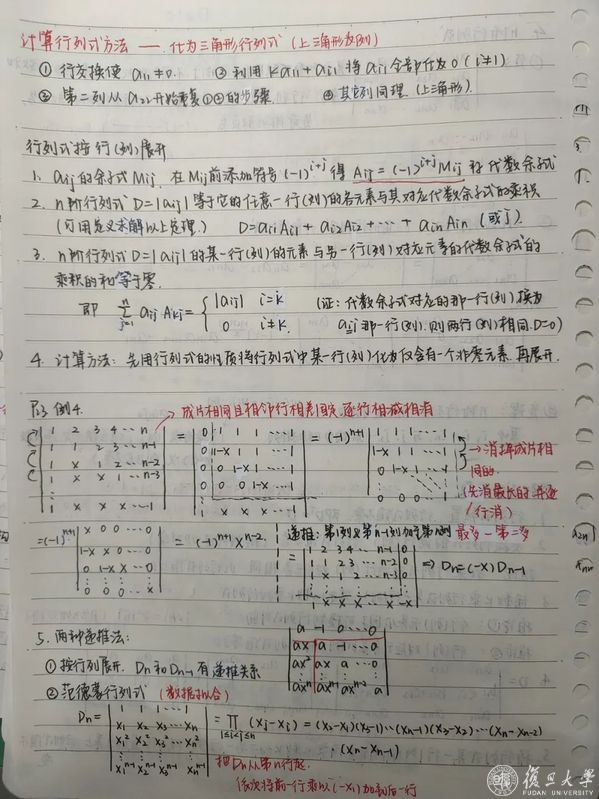 计算行列式方法 —— 化为三角形行列式 (上三角形为例)
① 行交换使 a₁₁≠0. ③ 利用 ka₁₁+aᵢ₁ 将 aᵢ₁ 全部化为 0 (i≠1)
② 第二列从 a₂₂ 开始重复①②的步骤 ④ 其它列同理. (上三角形).
行列式按行(列)展开
1. aij 的余子式 Mij. 在 Mij 前添加符号 (-1)^{i+j} 得 Aij = (-1)^{i+j} Mij 称代数余子式
2. n 阶行列式 D=|aij| 等于它的任意一行(列)的各元素与其对应代数余子式的乘积
(可用定义求解以上定理.) D=ai1Ai1+ai2Ai2+⋯+ainAin (或j).
3. n 阶行列式 D=|aij| 的某一行(列)的元素与另一行(列)对应元素的代数余子式的
乘积的和等于零.
即 ∑_{j=1}^{n} aij Akj = { |aij| i=k
0 i≠k.
(证: 代数余子式对应的那一行(列) 换为
aij 那一行(列). 则两行(列)相同. D=0)
4. 计算方法: 先用行列式的性质将行列式中某一行(列)化为仅含有一个非零元素. 再展开.
例4. → 成片相同且相邻行相差固定 逐行相减相消
1 2 3 4 ⋯ n
1 1 2 3 ⋯ n-1
1 x 1 2 ⋯ n-2
1 x x 1 ⋯ n-3
⋮
1 x x x ⋯ 1
=
0 1 1 1 ⋯ 1
0 1-x 1 1 ⋯ 1
0 0 1-x 1 ⋯ 1
0 0 0 1-x ⋯ 1
⋮
1 x x x ⋯ 1
= (-1)^{n+1}
1 1 1 ⋯ 1
1-x 1 1 ⋯ 1
0 1-x 1 ⋯ 1
0 0 0 ⋯ 1
→ 消掉成片相
同的.
(先消最长的 并逐
行消)
=(-1)^{n+1}
x 0 0 ⋯ 0
1-x x 0 ⋯ 0
0 1-x x ⋯ 0
⋮
0 ⋯ x
= (-1)^{n+1} x^{n-2}.
递推: 第1列 第n-1列加至第n列 最多一第二多
=
1 2 3 4 ⋯ n-1 0
1 1 2 3 ⋯ n-2 0
1 x 1 2 ⋯ n-3 0
⋮
1 x x x ⋯ x 1-x
⇒ Dn=(-x)Dn-1
5. 两种递推法:
① 按行列展开. Dn 和 Dn-1 有递推关系
a -1 0 ⋯ 0
ax a -1 ⋯ 0
ax² ax a ⋯ 0
⋮
axⁿ axⁿ⁻¹ axⁿ⁻² a
② 范德蒙行列式 (数据拟合)
Dn=
1 1 1 ⋯ 1
x1 x2 x3 ⋯ xn
x1² x2² x3² ⋯ xn²
⋮
x1ⁿ⁻¹ x2ⁿ⁻¹ x3ⁿ⁻¹ ⋯ xnⁿ⁻¹
= ∏_{1≤i<j≤n} (xj-xi) = (x2-x1)(x3-x1)⋯(xn-x1)(x3-x2)⋯(xn-x2)
⋯(xn-xn-1)
把Dn从第n行起
依次将前一行乘以(-x1)加到后一行
復旦大學
FUDAN UNIVERSITY